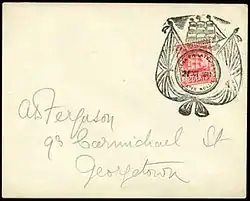 A D Ferguson
93 Carmichael St
Georgetown